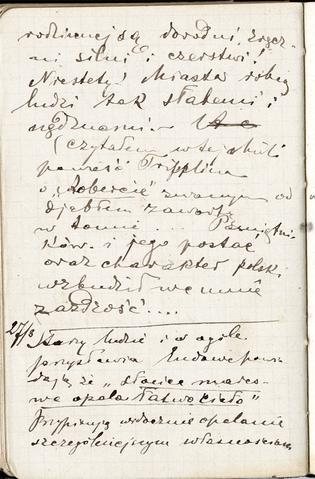 rodzinnej są dorodni, zręcz-
ni silni i czerstwi!
Niestety! Miasta robią
ludzi tak słabemi i
nędznemi.-
(czytałem w tej chwili
powieść Tripplina
o „Tobercie" zwanym od
djabłem zawarty
w tomie .... Pamiętni-
ków. i jego postać
oraz charakter polski
wzbudził we mnie
zazdrość....
27/3 Stary ludzie i w ogóle
przysłowia ludowe powia-
dają, że „słońce marco-
we opala łatwo ciało"
Przypisują widocznie opalanie
szczególniejszym własnościom